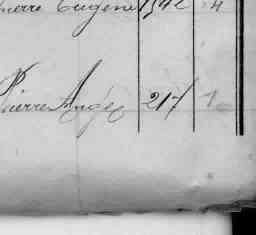 Pierre Eugène 1542 4
Pierre Ange 217